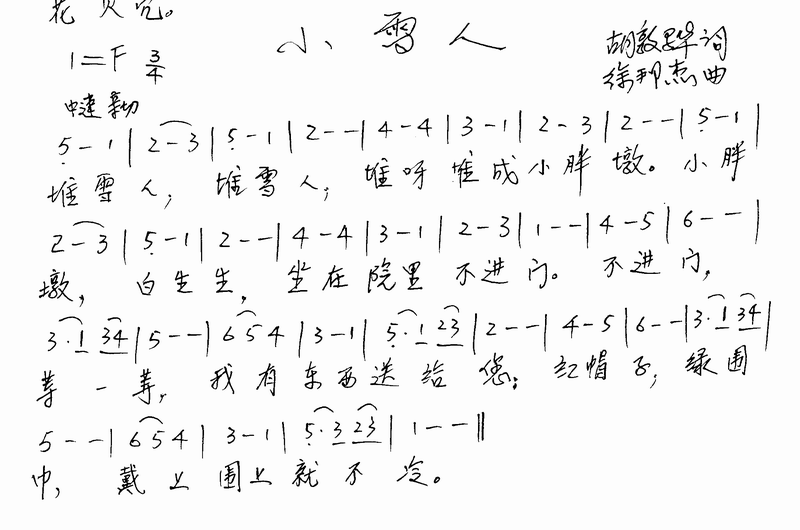 花
小雪人
1=F 3/4
胡敦骅词
徐邦杰曲
中速
5 - 1 | 2 - 3 | 5 - 1 | 2 - - | 4 - 4 | 3 - 1 | 2 - 3 | 2 - - | 5 - 1 |
堆雪人, 堆雪人, 堆呀堆成小胖墩。小胖
2 - 3 | 5 - 1 | 2 - - | 4 - 4 | 3 - 1 | 2 - 3 | 1 - - | 4 - 5 | 6 - - |
墩, 白生生, 坐在院里不进门。不进门,
3·1 34 | 5 - - | 6 5 4 | 3 - 1 | 5·1 23 | 2 - - | 4 - 5 | 6 - - | 3·1 34 |
等一等, 我有东西送给您; 红帽子, 绿围
5 - - | 6 5 4 | 3 - 1 | 5·3 23 | 1 - - ‖
巾, 戴上围上就不冷。